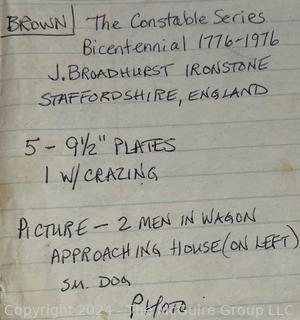 BROWN | The Constable Series
Bicentennial 1776-1976
J. BROADHURST IRONSTONE
STAFFORDSHIRE, ENGLAND
5 - 9½" PLATES
1 W/ CRAZING
PICTURE - 2 MEN IN WAGON
APPROACHING HOUSE (ON LEFT)
SM. DOG
PHOTO
Copyright 2024 - The McGuire Group LLC